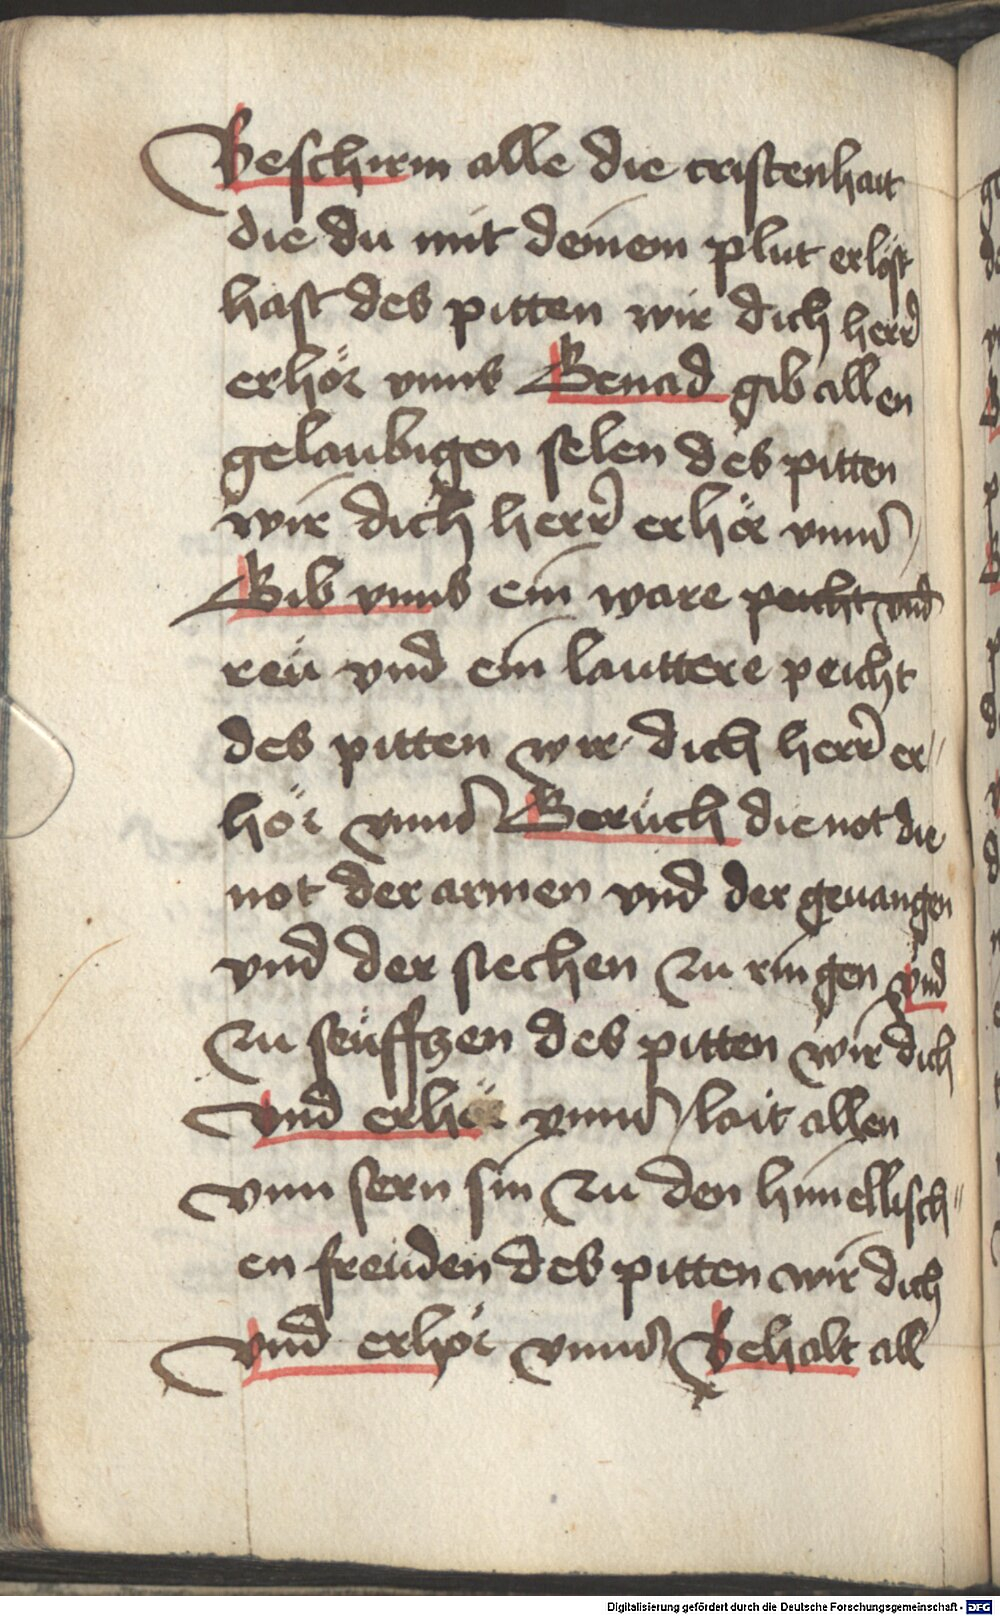 Beschirm alle die cristenhait
die du mit deinem plut erlöst
hast des pitten wir dich herr
erhör vnns Genad gib allen
gelaubigen selen des pitten
wir dich herr erhör vnns
Gib vnns ein ware peicht vnd
reü vnd ein lauttere peicht
des pitten wir dich herr er„
hör vnns Geruch die not die
not der armen vnd der geuangen
vnd der siechen zu ringen vnd
zu seüfftzen des pitten wir dich
vnd erhör vnns lait allen
vnnsern sin zu den himellisch„
en freüden des pitten wir dich
vnd erhör vnns Behalt all
Digitalisierung gefördert durch die Deutsche Forschungsgemeinschaft - DFG